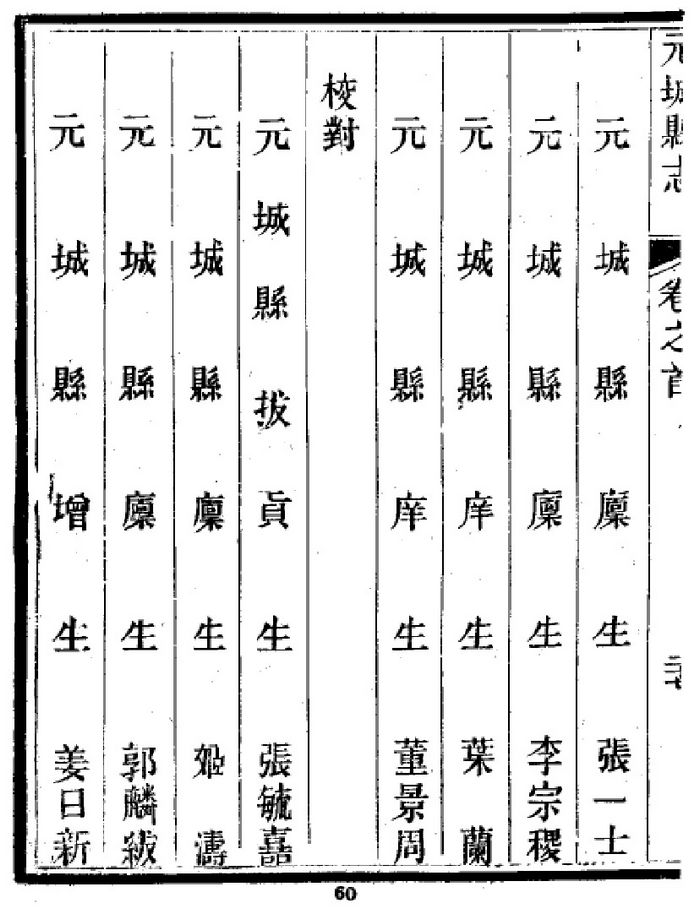 元城縣志
卷之首
元城縣廩生張一士
元城縣廩生李宗稷
元城縣庠生葉蘭
元城縣庠生董景周
校對
元城縣拔貢生張毓嘉
元城縣廩生姬濤
元城縣廩生郭麟紱
元城縣增生姜日新
60